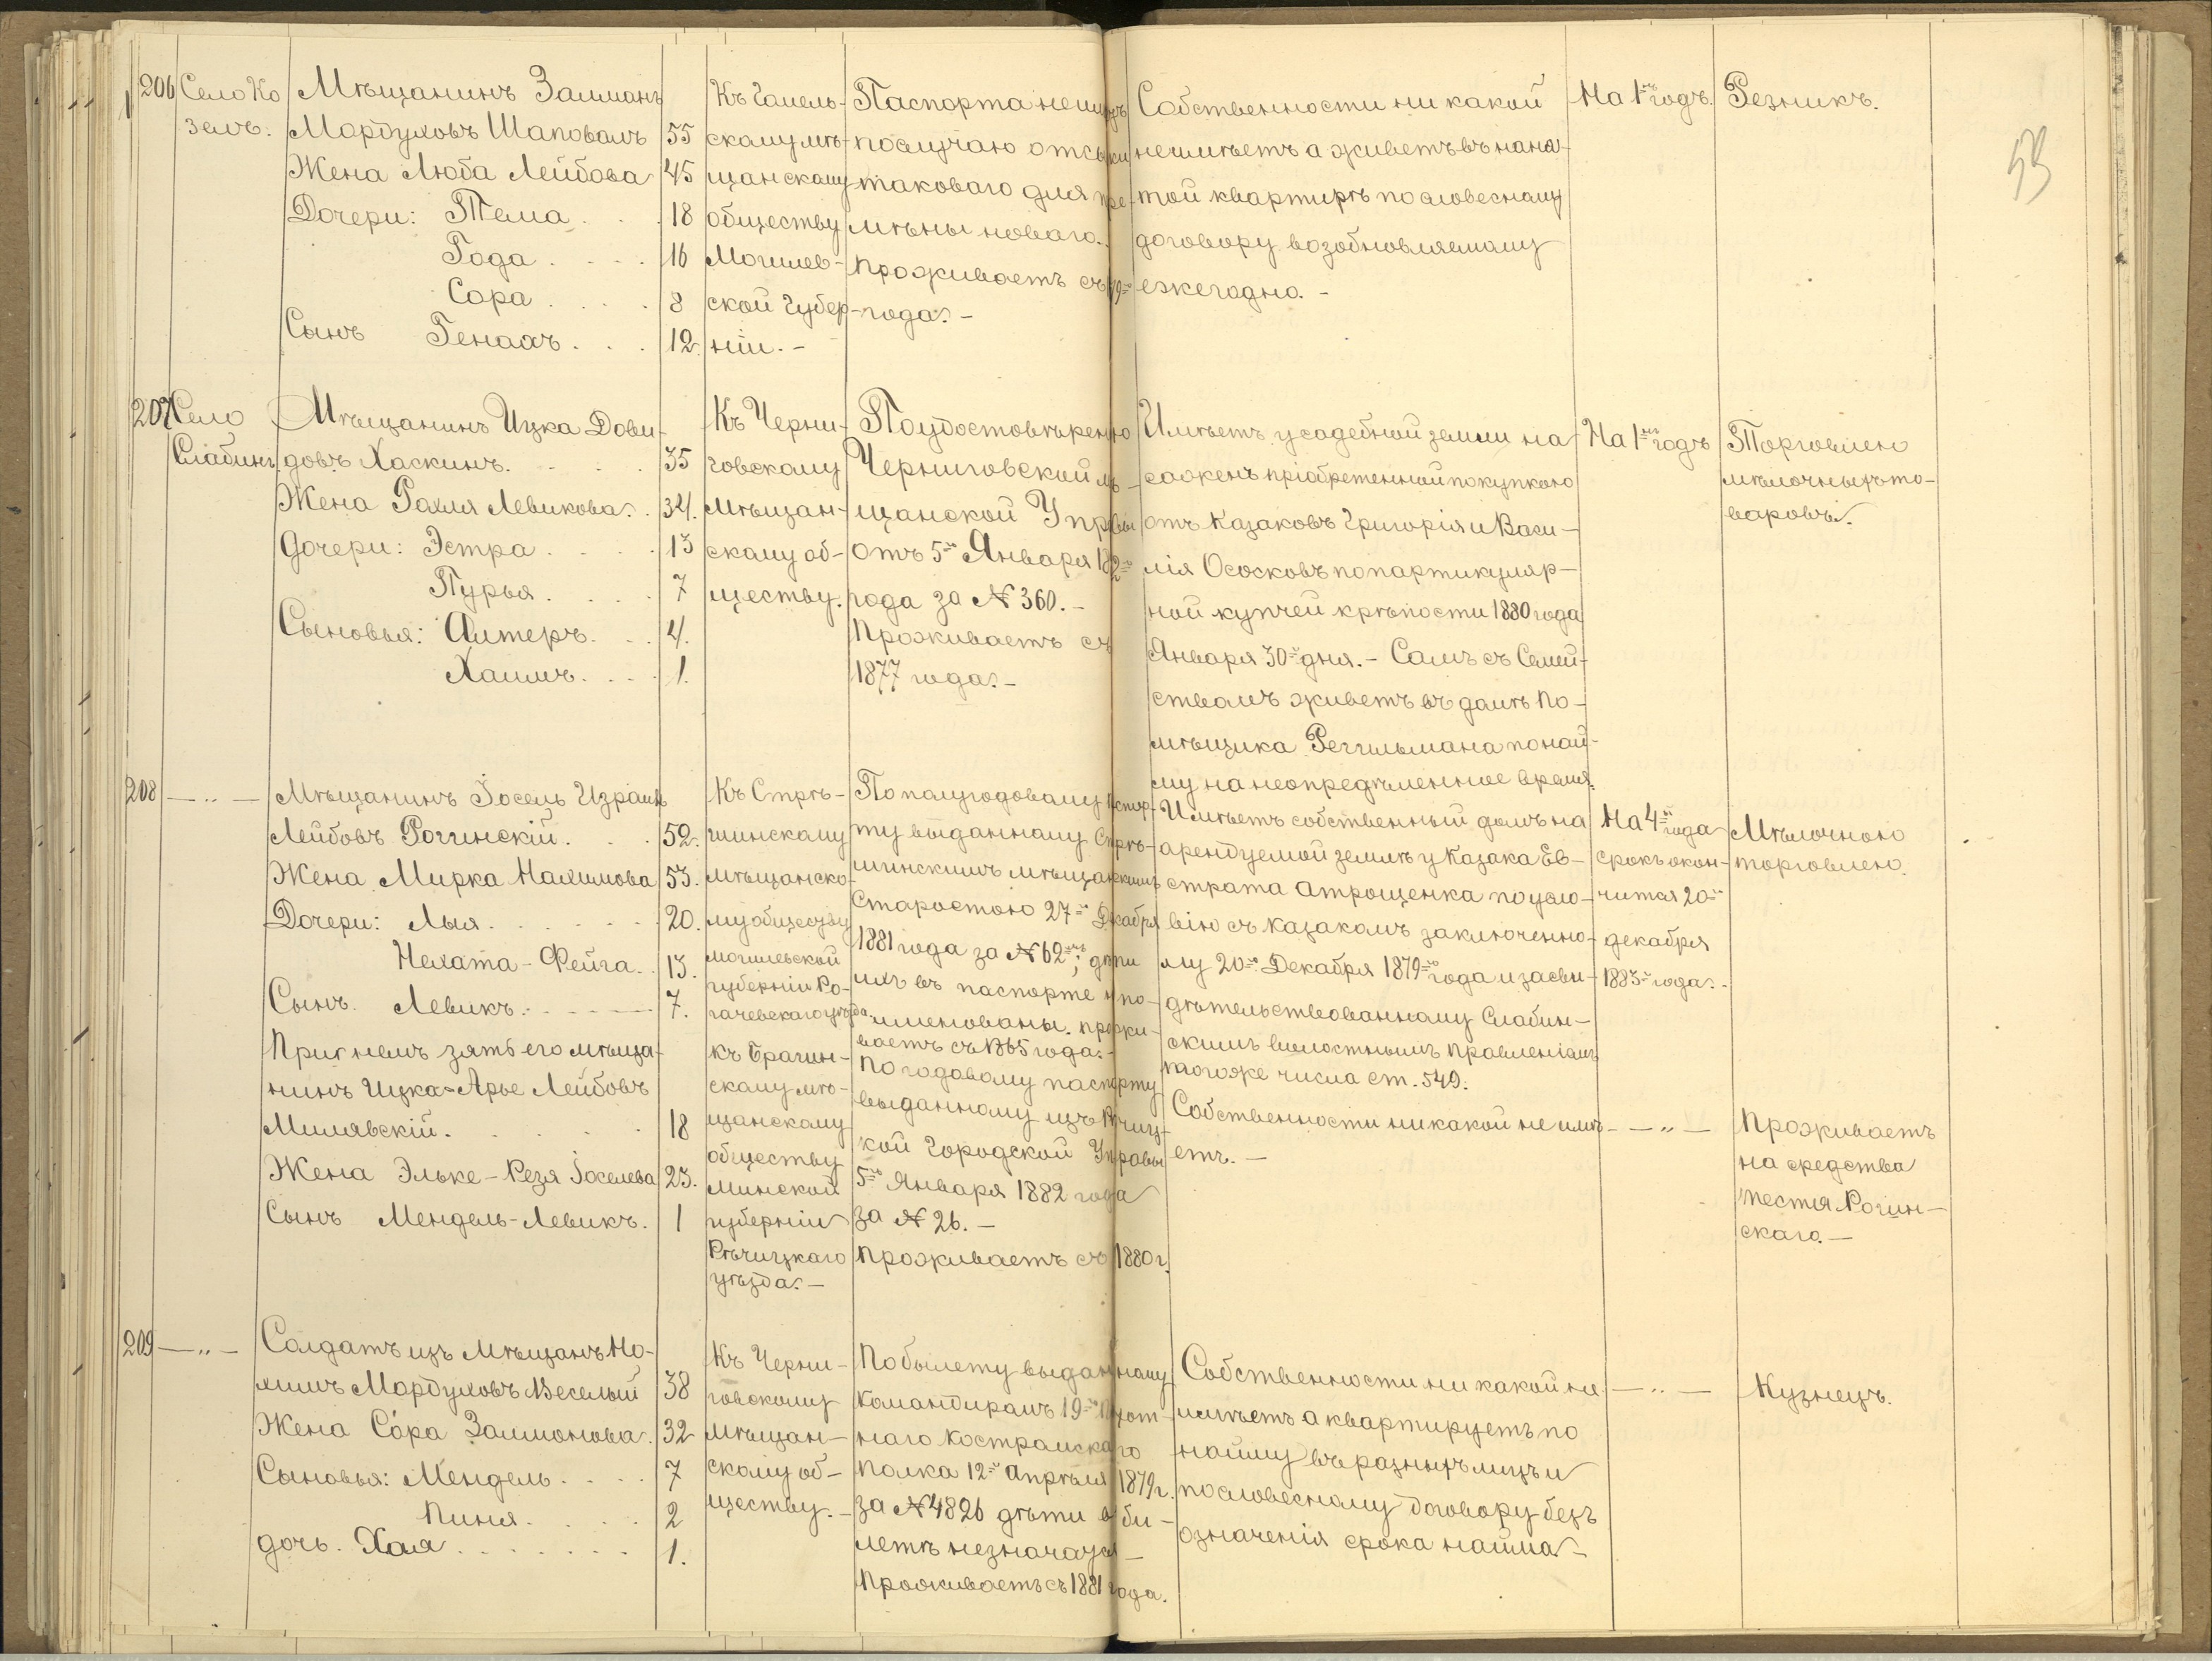 206
Село Ко
зелъ.
Мѣщанинъ Залманъ
Мордуховъ Шаповалъ 55
Жена Люба Лейбова 45
Дочери: Тема . . . 18
Года . . . . 16
Сора . . . . 8
Сынъ Генахъ . . . 12.
Къ Гомель-
скому мѣ-
щанскому
обществу
Могилев-
ской Губер-
ніи. -
Паспорта неимѣетъ
посучаю отсылки
таковаго для пре-
мѣны новаго.
Проживаетъ съ
года. -
Собственности ни какой
неимѣетъ а живетъ въ наня-
той квартирѣ по словесному
договору возобновляемому
ежегодно. -
На 1 годъ.
Резникъ.
53
207
Село
Слабинъ
Мѣщанинъ Ицка Дови-
довъ Хаскинъ. . . . 35
Жена Рахля Левикова. . 34.
Дочери: Эстра . . . . 13
Пурья . . . . 7
Сыновья: Алтеръ. . . 4.
Хаимъ. . . . 1.
Къ Черни-
говскому
мѣщан-
скому об-
ществу.
Поудостовѣренію
Черниговской мѣ-
щанской Управы
отъ 5го Января 1882го
года за № 360. -
Проживаетъ съ
1877 года. -
Имѣетъ усадебной земли на
сажень пріобретенной покупкою
отъ Казаковъ Григорія и Васи-
лія Ососковъ попартикуляр-
ной купчей крѣпости 1880 года
Января 30го дня. - Самъ съ Семей-
ствомъ живетъ въ домѣ По-
мѣщика Регильмана понай-
му на неопредѣленное время.
На 1 годъ
Торговлею
мѣлочныхъ то-
варовъ.
208
— „ —
Мѣщанинъ Іосель Израиль
Лейбовъ Рогинскій. . . . 52.
Жена Мирка Нахимова 53.
Дочери: Лыя. . . . . . 20.
Нехата-Фейга. . 13.
Сынъ. Левикъ. - - - - 7.
При немъ зять его мѣща-
нинъ Ицка-Арье Лейбовъ
Милявскій. . . . . . 18
Жена Эльке-Резя Іоселева 23.
Сынъ Мендель-Левикъ. 1
Къ Стрѣ-
шинскому
мѣщанско-
му обществу
могилевской
губерніи Ро-
гачевскаго уѣзда.
Къ Брагин-
скому мѣ-
щанскому
обществу
Минской
губерніи
Рѣчицкаго
уѣзда. -
По полугодовому паспор-
ту выданному Стрѣ-
шинскимъ мѣщанскимъ
Старостою 27го Декабря
1881 года за № 62мъ; дѣти
ихъ въ паспорте по-
именованы. прожи-
ваетъ съ 1865 года. -
По годовому паспорту
выданному изъ Рѣчиц-
кой Городской Управы
5го Января 1882 года
за № 26. -
Проживаетъ съ 1880 г.
Имѣетъ собственный домъ на
арендуемой землѣ у Казака Ев-
страта Атрощенка по усло-
вію съ казакомъ заключенно-
му 20го Декабря 1879го года и засви-
дѣтельствованному Слабин-
скимъ волостнымъ Правленіемъ
тогоже числа ст. 549.
Собственности никакой не имѣ-
етъ. -
На 4 года
срокъ окон-
чится 20го
декабря
1883го года. -
— „ —
Мѣлочною
торговлею.
Проживаетъ
на средства
тестя Рогин-
скаго. -
209
— „ —
Солдатъ изъ Мѣщанъ Но-
химъ Мордуховъ Веселый 38
Жена Сóра Залмонова. 32
Сыновья: Мендель . . . . 7
Пиня. . . . . 2
дочь. Хая . . . . . . . 1.
Къ Черни-
говскому
мѣщан-
скому об-
ществу. -
По билету выданному
Командиромъ 19го Пѣхот-
наго Костромскаго
Полка 12го Апрѣля 1879 г.
за № 4826 дѣти в би-
летѣ незначатся -
Проживаетъ съ 1881 года.
Собственности ни какой не
имѣетъ а квартируетъ по
найму въ разныхъ лицъ и
пословесному договору безъ
означенія срока найма -
— „ —
Кузнецъ.